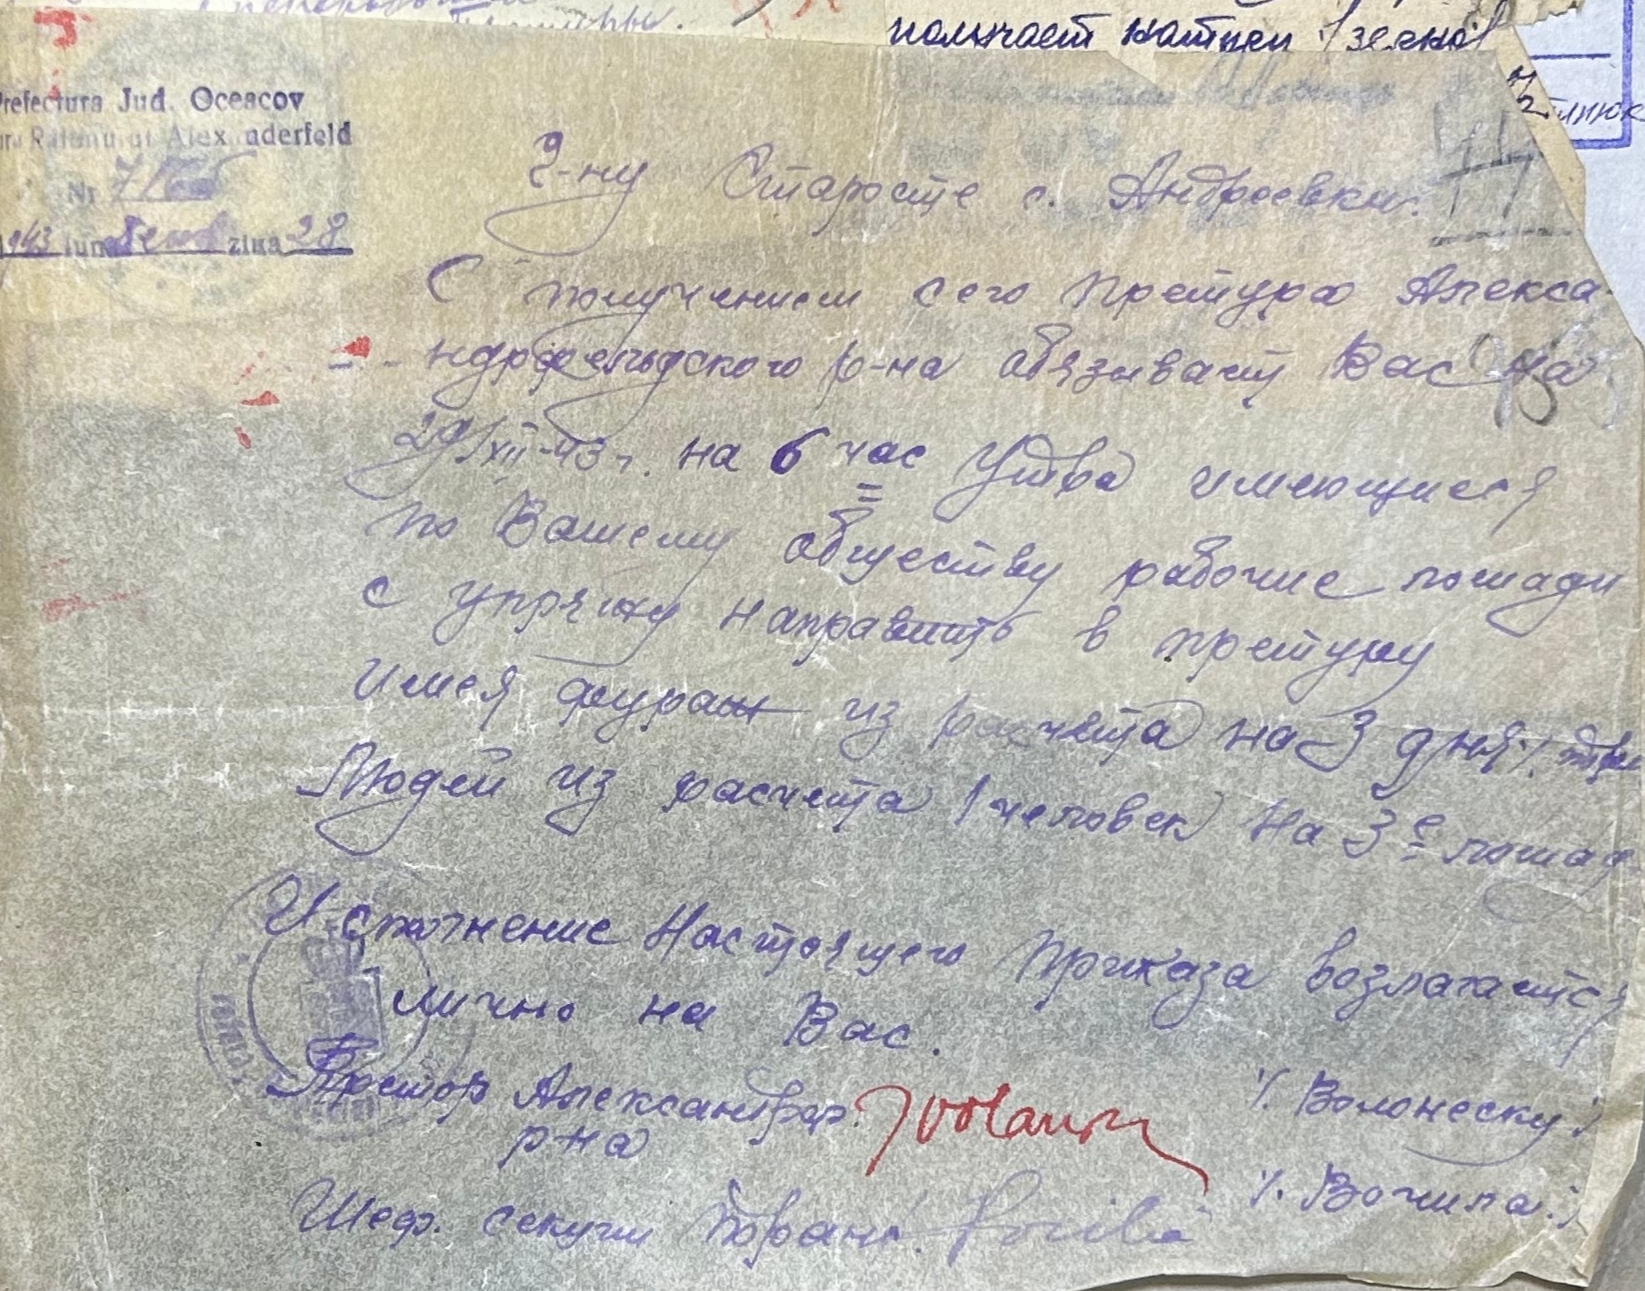 получает натурой /зерно/
Prefectura Jud. Oceacov
Alexanderfeld
Nr
1943 luna Decb ziua 28
Г-ну Старосте с. Андреевки.
С получением сего Претура Алекса-
ндрфельдского р-на обязывает Вас на
29/XII-43 г. на 6 час Утра имеющиеся
по Вашему обществу рабочие лошади
с упряжу направить в претуру
Имея фураж из расчета на 3 дня
Людей из расчета 1 человек на 3е лошад.
Исполнение Настоящего Приказа возлагается
лично на Вас.
Претор Александрф.
р-на
/. Воломеску ./
Шеф. секции
/. Вочила ./